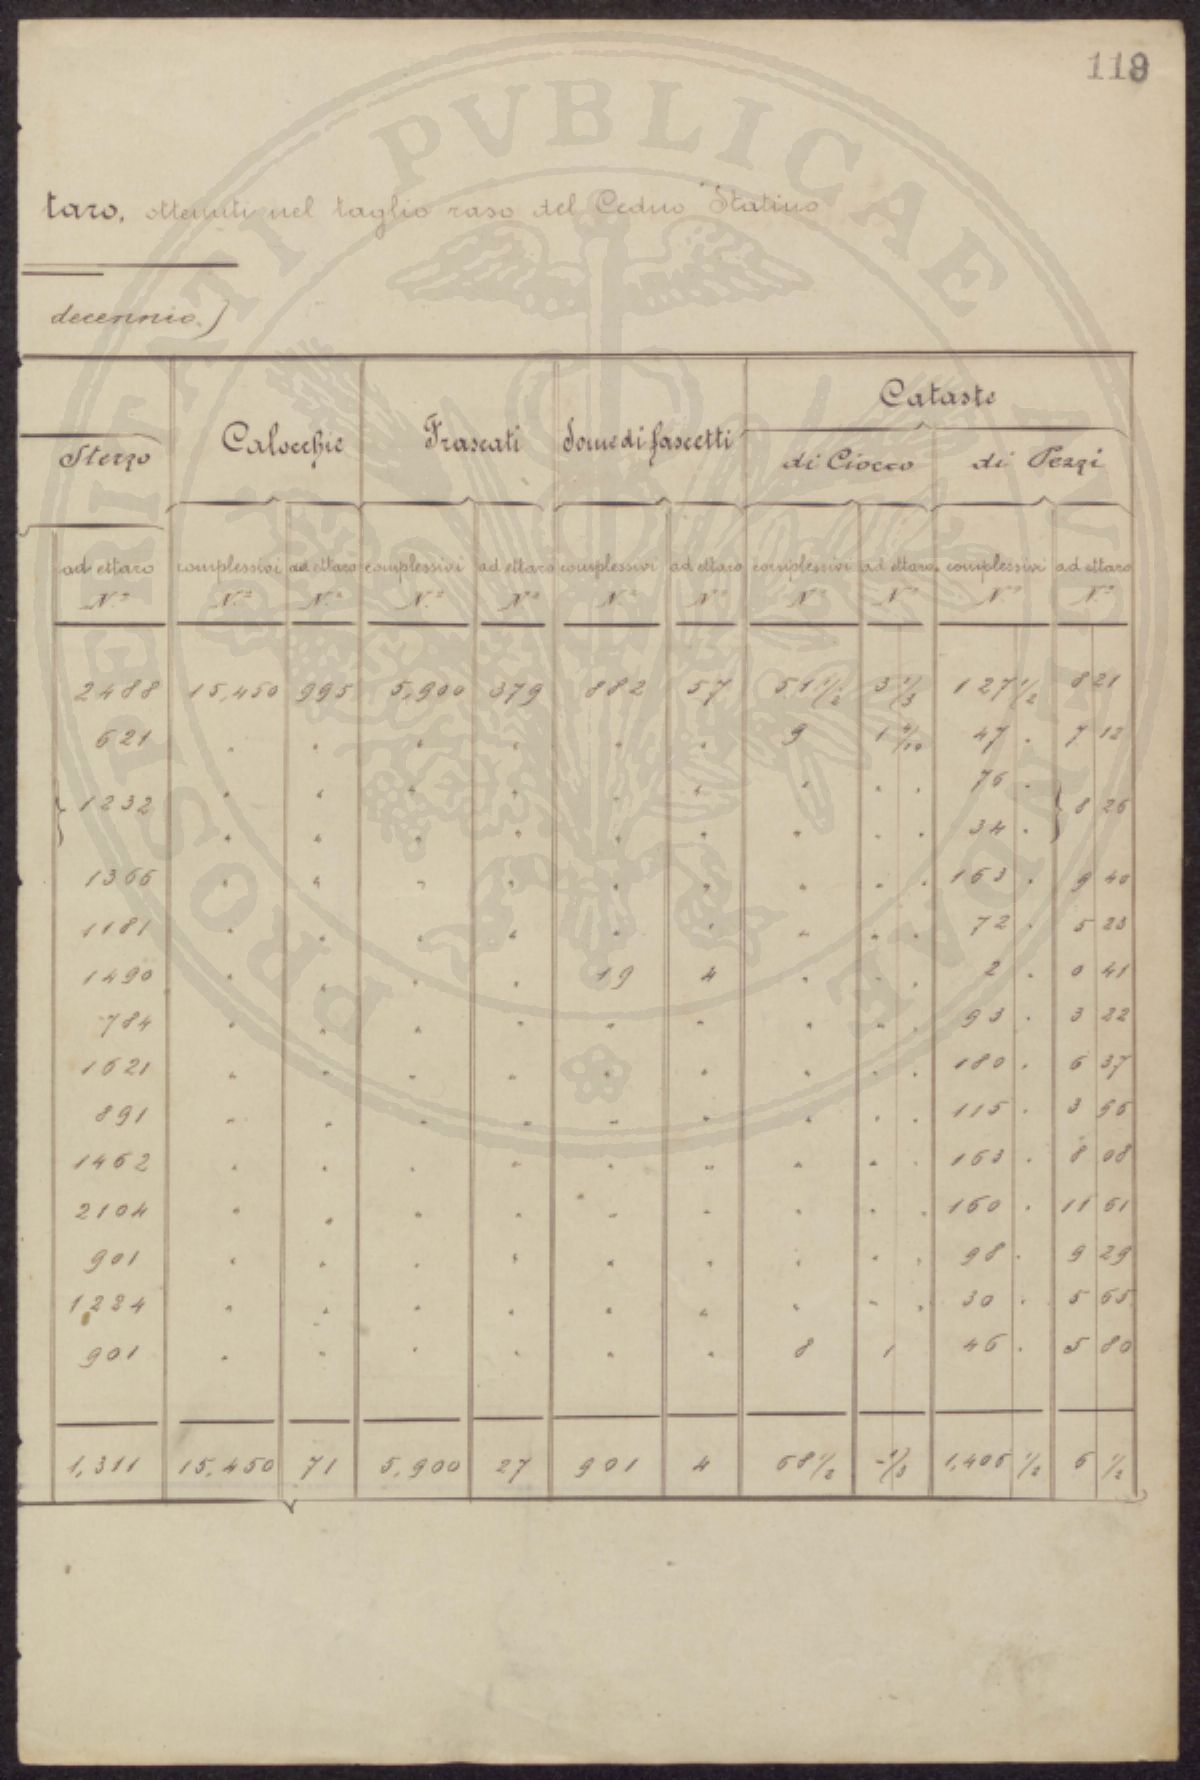 119
PVBLICAE VTILITATI PROSPERITATI DAE
taro, ottenuti nel taglio raso del Ceduo "Statino
decennio.)
Sterzo Calocchie Frascati Some di fascetti Cataste
di Ciocco di Pezzi
ad ettaro complessivi ad ettaro complessivi ad ettaro complessivi ad ettaro complessivi ad ettaro complessivi ad ettaro
N.º N.º N.º N.º N.º N.º N.º N.º N.º N.º N.º
2488 15,450 995 5,900 379 882 57 51 1/2 3 1/3 127 1/2 8 21
621 " " " " " " 9 1 4/10 47 . 7 12
" " " " " " " . . 76 .
} 1232 } 8 26
" " " " " " " . . 34 .
1366 " " " " " " " " . 163 . 9 40
1181 " " " " " " " " . 72 . 5 23
1490 " " " " 19 4 " " . 2 . 0 41
784 " " " " " " " " . 93 . 3 22
1621 " " " " " " " " . 180 . 6 37
891 " " " " " " " " . 115 . 3 56
1462 " " " " " " " " . 163 . 8 08
2104 " " " " " " " " . 160 . 11 61
901 " " " " " " " " . 98 . 9 29
1224 " " " " " " " " . 30 . 5 65
901 " " " " " " 8 1 46 . 5 80
1,311 15,450 71 5,900 27 901 4 68 1/2 -1/3 1,406 1/2 6 1/2